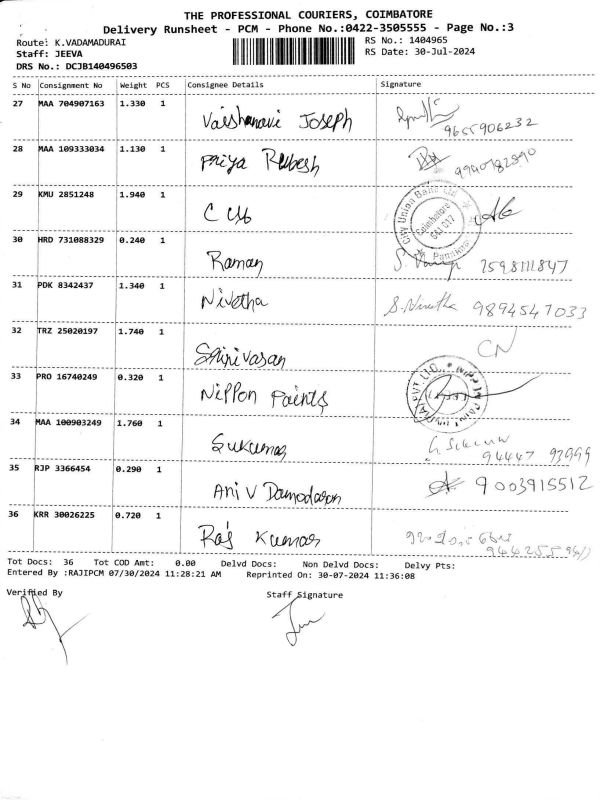 THE PROFESSIONAL COURIERS, COIMBATORE
Delivery Runsheet - PCM - Phone No.:0422-3505555 - Page No.:3
Route: K.VADAMADURAI RS No.: 1404965
Staff: JEEVA RS Date: 30-Jul-2024
DRS No.: DCJB140496503
S No Consignment No Weight PCS Consignee Details Signature
27 MAA 704907163 1.330 1 Vaishanavi Joseph 9655906232
28 MAA 109333034 1.130 1 Priya
29 KMU 2851248 1.940 1 CUB City Union Bank Ltd Coimbatore
30 HRD 731088329 0.240 1 Raman 7598111847
31 PDK 8342437 1.340 1 Nivetha S. Nivetha 9894547033
32 TRZ 25020197 1.740 1 Shrinivasan CN
33 PRO 16740249 0.320 1 Nippon Paints
34 MAA 100903249 1.760 1 Sukumar 94447 93999
35 RJP 3366454 0.290 1 Ani V Damodaran 9003915512
36 KRR 30026225 0.720 1 Raj Kumar
Tot Docs: 36 Tot COD Amt: 0.00 Delvd Docs: Non Delvd Docs: Delvy Pts:
Entered By :RAJIPCM 07/30/2024 11:28:21 AM Reprinted On: 30-07-2024 11:36:08
Verified By Staff Signature